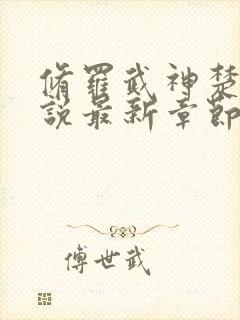 脩羅武神楚
說最新章節
傅世武